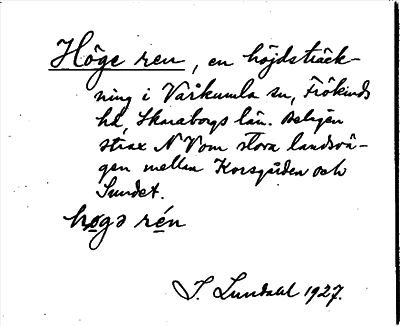 Höge ren, en höjdsträck-
ning i Vårkumla sn, Frökinds
hd, Skaraborgs län. Belägen
strax NV om stora landsvä-
gen mellan Korsgården och
Sundet.
högə rén
J. Lundahl 1927.